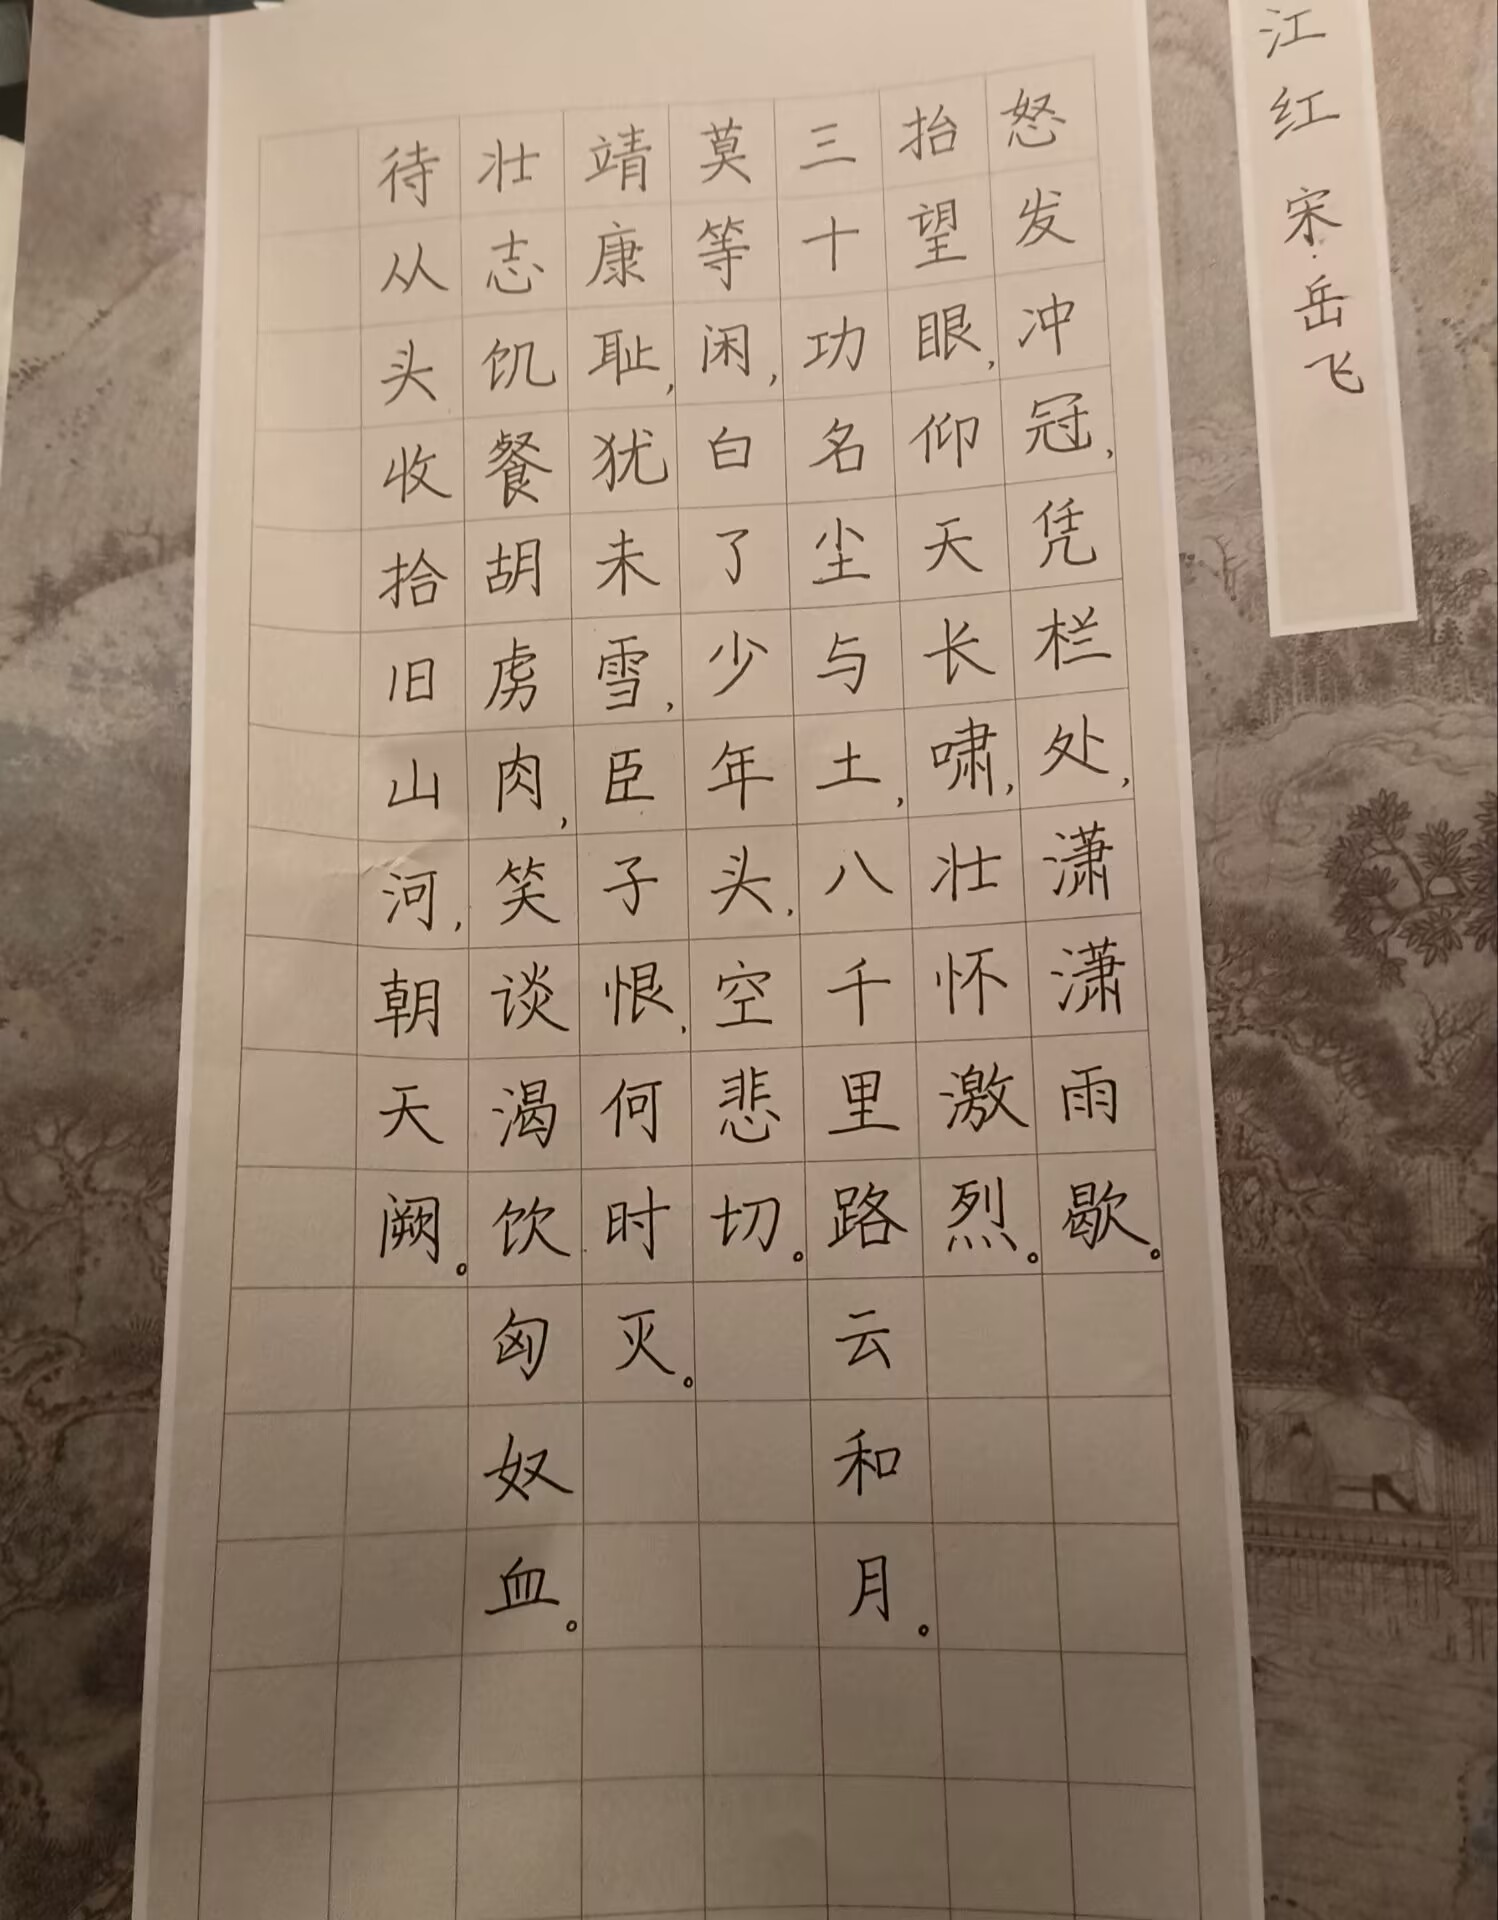 江红 宋·岳飞
怒发冲冠,凭栏处,潇潇雨歇。
抬望眼,仰天长啸,壮怀激烈。
三十功名尘与土,八千里路云和月。
莫等闲,白了少年头,空悲切。
靖康耻,犹未雪,臣子恨,何时灭。
壮志饥餐胡虏肉,笑谈渴饮匈奴血。
待从头收拾旧山河,朝天阙。